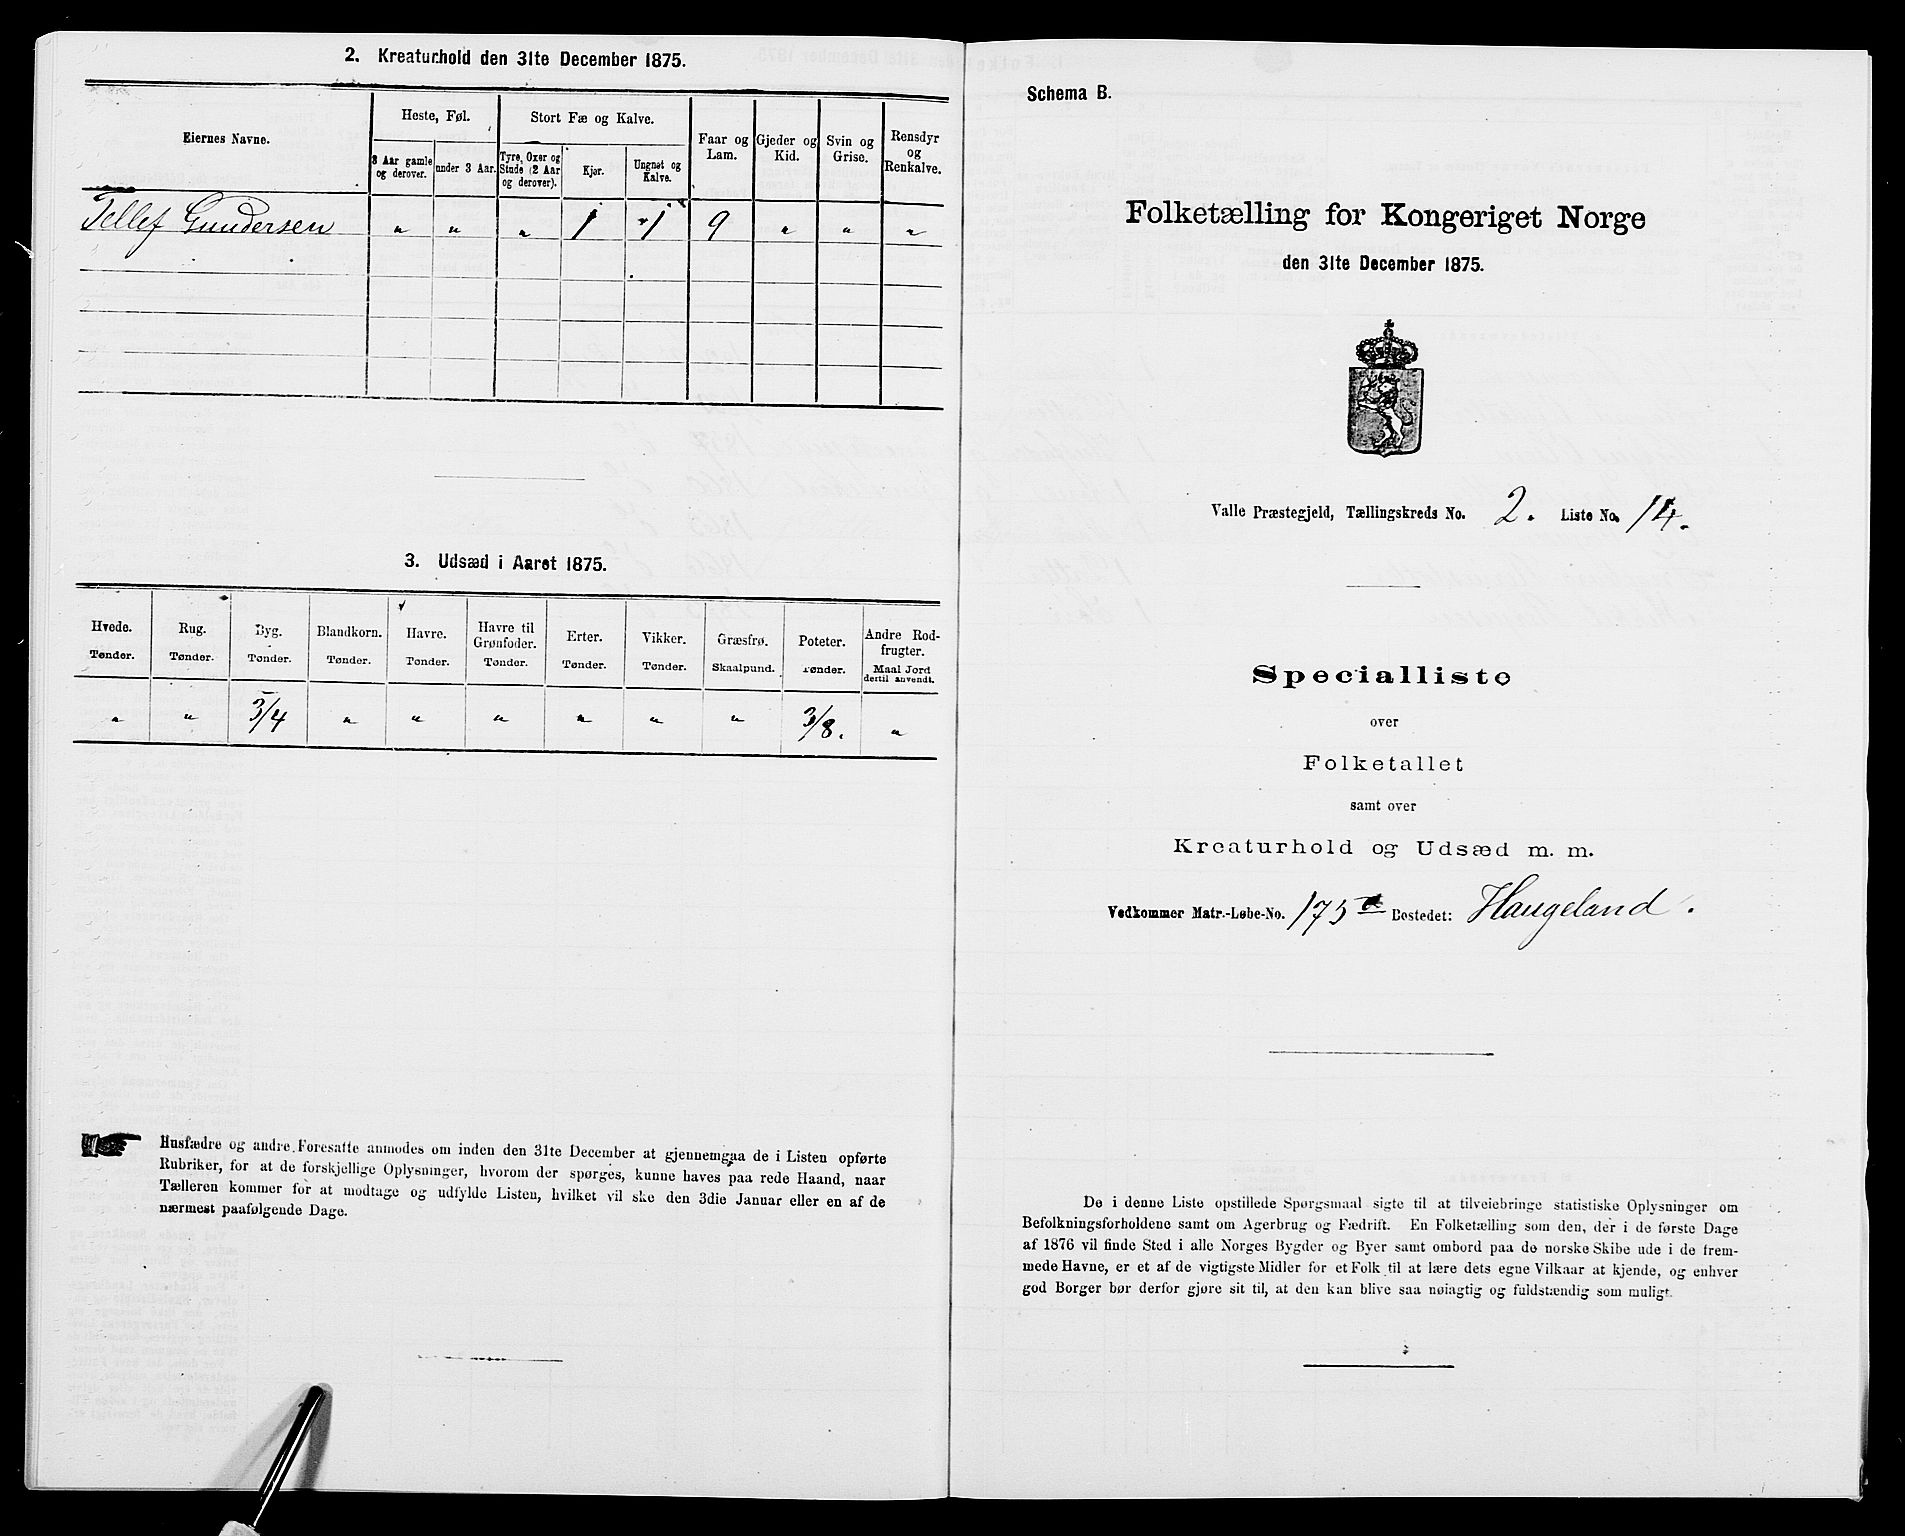 2. Kreaturhold den 31te December 1875.
Eiernes Navne.
Heste, Føl.
3 Aar gamle og derover.
under 3 Aar.
Stort Fæ og Kalve.
Tyre, Oxer og Stude (2 Aar og derover).
Kjør.
Ungnøt og Kalve.
Faar og Lam.
Gjeder og Kid.
Svin og Grise.
Rensdyr og Renkalve.
Tellef Gundersen " " " 1 1 9 " " "
3. Udsæd i Aaret 1875.
Hvede. Tønder.
Rug. Tønder.
Byg. Tønder.
Blandkorn. Tønder.
Havre. Tønder.
Havre til Grønfoder. Tønder.
Erter. Tønder.
Vikker. Tønder.
Græsfrø. Skaalpund.
Poteter. Tønder.
Andre Rodfrugter. Maal Jord dertil anvendt.
" " 3/4 " " " " " " 3/8. "
Husfædre og andre Foresatte anmodes om inden den 31te December at gjennemgaa de i Listen opførte
Rubriker, for at de forskjellige Oplysninger, hvorom der spørges, kunne haves paa rede Haand, naar
Tælleren kommer for at modtage og udfylde Listen, hvilket vil ske den 3die Januar eller en af de
nærmest paafølgende Dage.
Schema B.
Folketælling for Kongeriget Norge
den 31te December 1875.
Valle Præstegjeld, Tællingskreds No. 2. Liste No. 14.
Specialliste
over
Folketallet
samt over
Kreaturhold og Udsæd m. m.
Vedkommer Matr.-Løbe-No. 175 d Bostedet: Haugeland.
De i denne Liste opstillede Spørgsmaal sigte til at tilveiebringe statistiske Oplysninger om
Befolkningsforholdene samt om Agerbrug og Fædrift. En Folketælling som den, der i de første Dage
af 1876 vil finde Sted i alle Norges Bygder og Byer samt ombord paa de norske Skibe ude i de frem-
mede Havne, er et af de vigtigste Midler for et Folk til at lære dets egne Vilkaar at kjende, og enhver
god Borger bør derfor gjøre sit til, at den kan blive saa nøiagtig og fuldstændig som muligt.